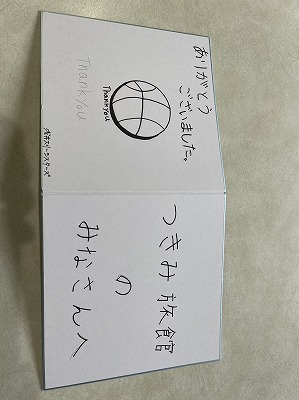 ありがとう
ございました。
Thankyou
Thankyou
つきみ旅館
の
みなさんへ